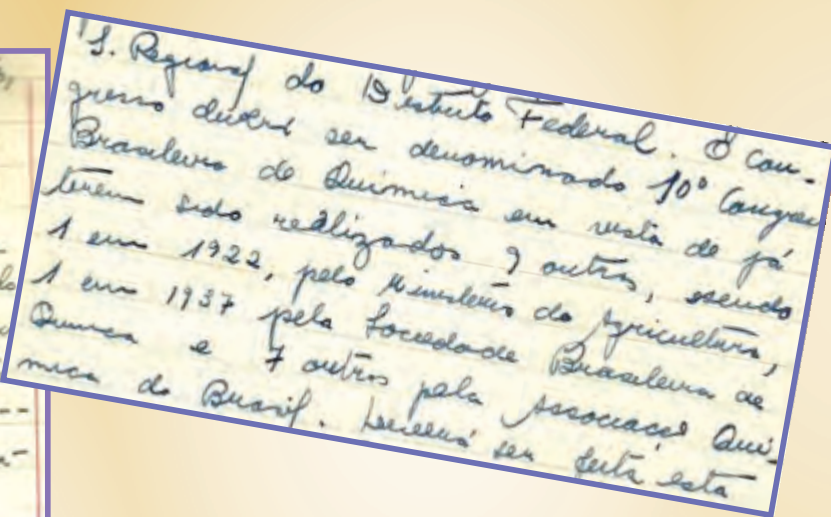 S. Regional do Distrito Federal. O Con-
gresso deverá ser denominado 10º Congresso
Brasileiro de Quimica em vista de já
terem sido realizados 9 outros, sendo
1 em 1922, pelo Ministerio da Agricultura,
1 em 1937 pela Sociedade Brasileira de
Quimica e 7 outros pela Associação Qui-
mica do Brasil. ser feita esta